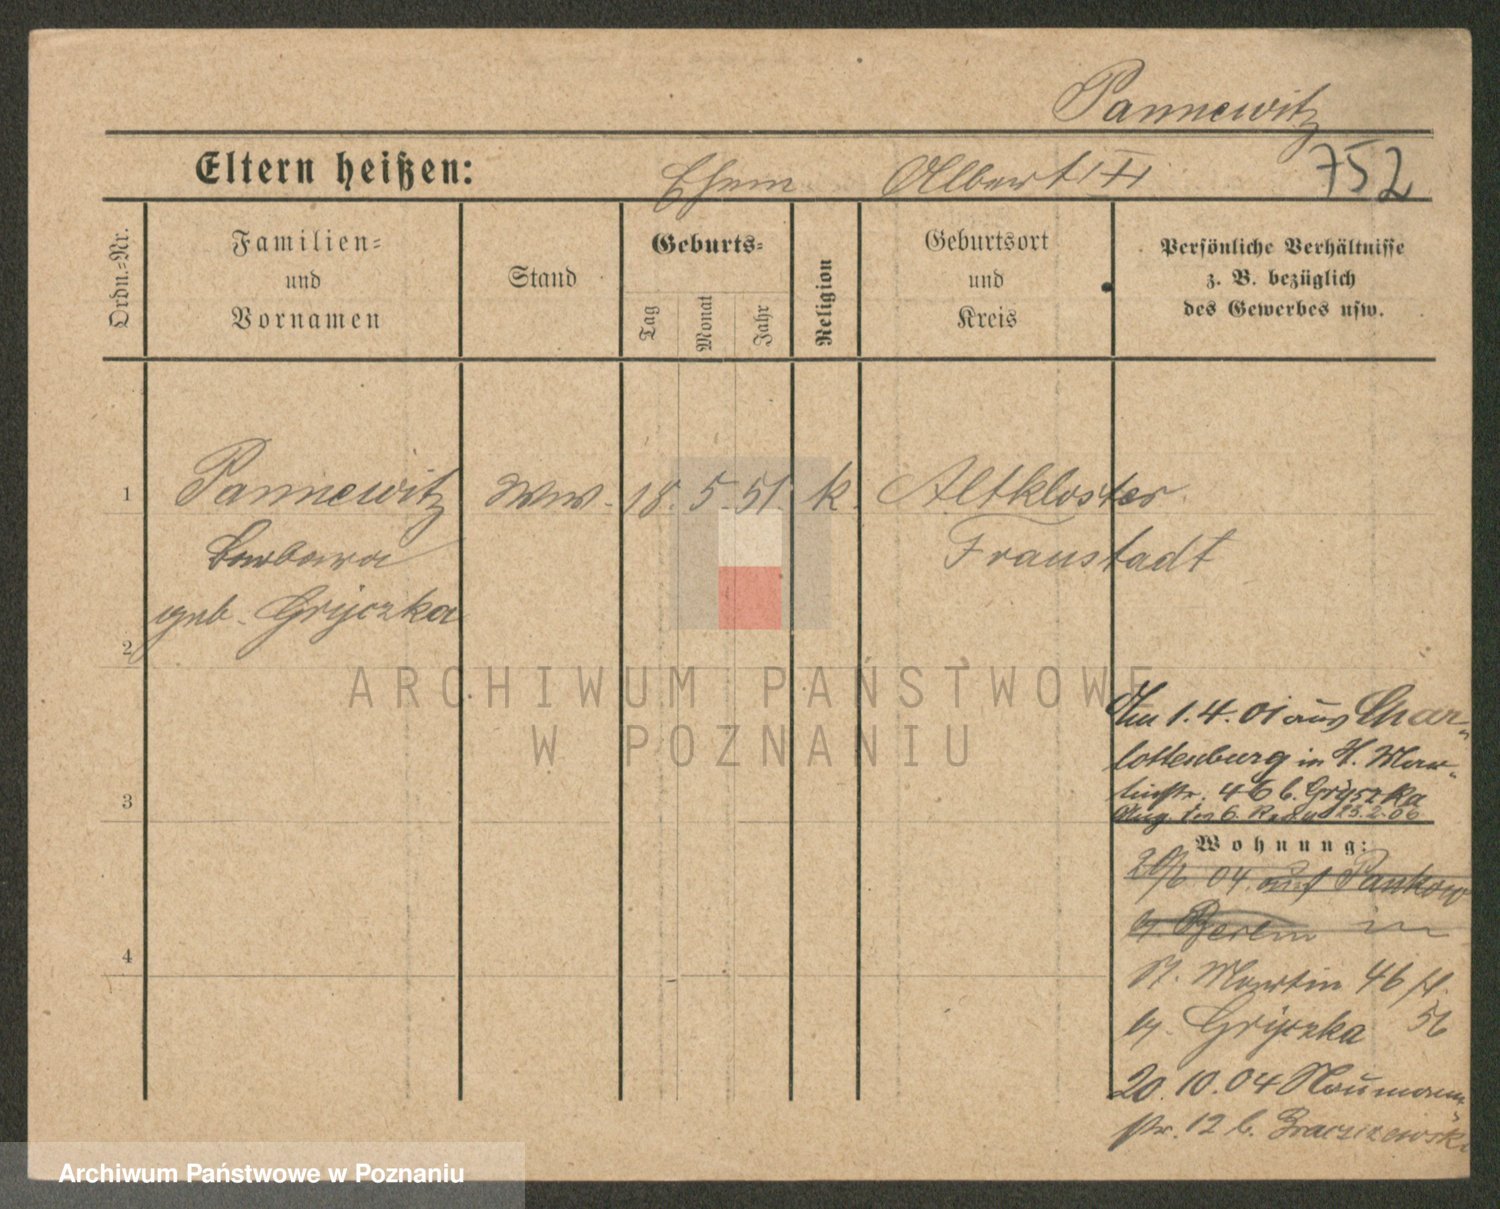 Pannewitz
Eltern heißen:
Ehem. Albert
752
Ordn.-Nr.
Familien-
und
Vornamen
Stand
Geburts-
Tag
Monat
Jahr
Religion
Geburtsort
und
Kreis
Persönliche Verhältnisse
z. B. bezüglich
des Gewerbes usw.
1 Pannewitz Ww. 18. 5. 51. k. Altkloster
Barbara Fraustadt
geb. Gryczka
2
ARCHIWUM PAŃSTWOWE
W POZNANIU
Am 1.4.01 aus Char-
lottenburg in St. Mar-
tinstr. 46 b. Gryczka
3
25.2.06
Wohnung:
20/6 04. auf Pankow
b. Berlin
4
St. Martin 46 H.
b. Gryczka 56
20.10.04 Naumann-
str. 12 b.
Archiwum Państwowe w Poznaniu